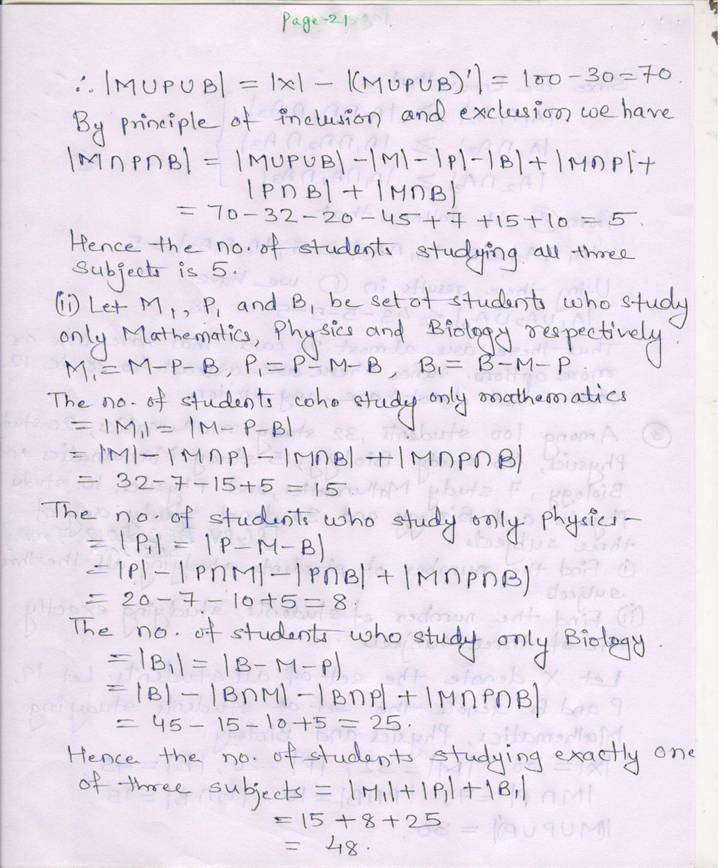 Page-21
∴ |MUPUB| = |X| - |(MUPUB)'| = 100-30=70.
By principle of inclusion and exclusion we have
|M∩P∩B| = |MUPUB|-|M|-|P|-|B|+|M∩P|+
|P∩B| + |M∩B|
= 70-32-20-45+7+15+10=5.
Hence the no. of students studying all three
subjects is 5.
(ii) Let M₁, P₁ and B₁ be set of students who study
only Mathematics, Physics and Biology respectively.
M₁=M-P-B, P₁=P-M-B, B₁=B-M-P
The no. of students who study only mathematics
= |M₁| = |M-P-B|
= |M|-|M∩P|-|M∩B|+|M∩P∩B|
= 32-7-15+5=15
The no. of students who study only physics-
= |P₁| = |P-M-B|
= |P|-|P∩M|-|P∩B|+|M∩P∩B|
= 20-7-10+5=8.
The no. of students who study only Biology.
= |B₁| = |B-M-P|
= |B|-|B∩M|-|B∩P|+|M∩P∩B|
= 45-15-10+5=25.
Hence the no. of students studying exactly one
of three subjects = |M₁|+|P₁|+|B₁|
= 15+8+25
= 48.